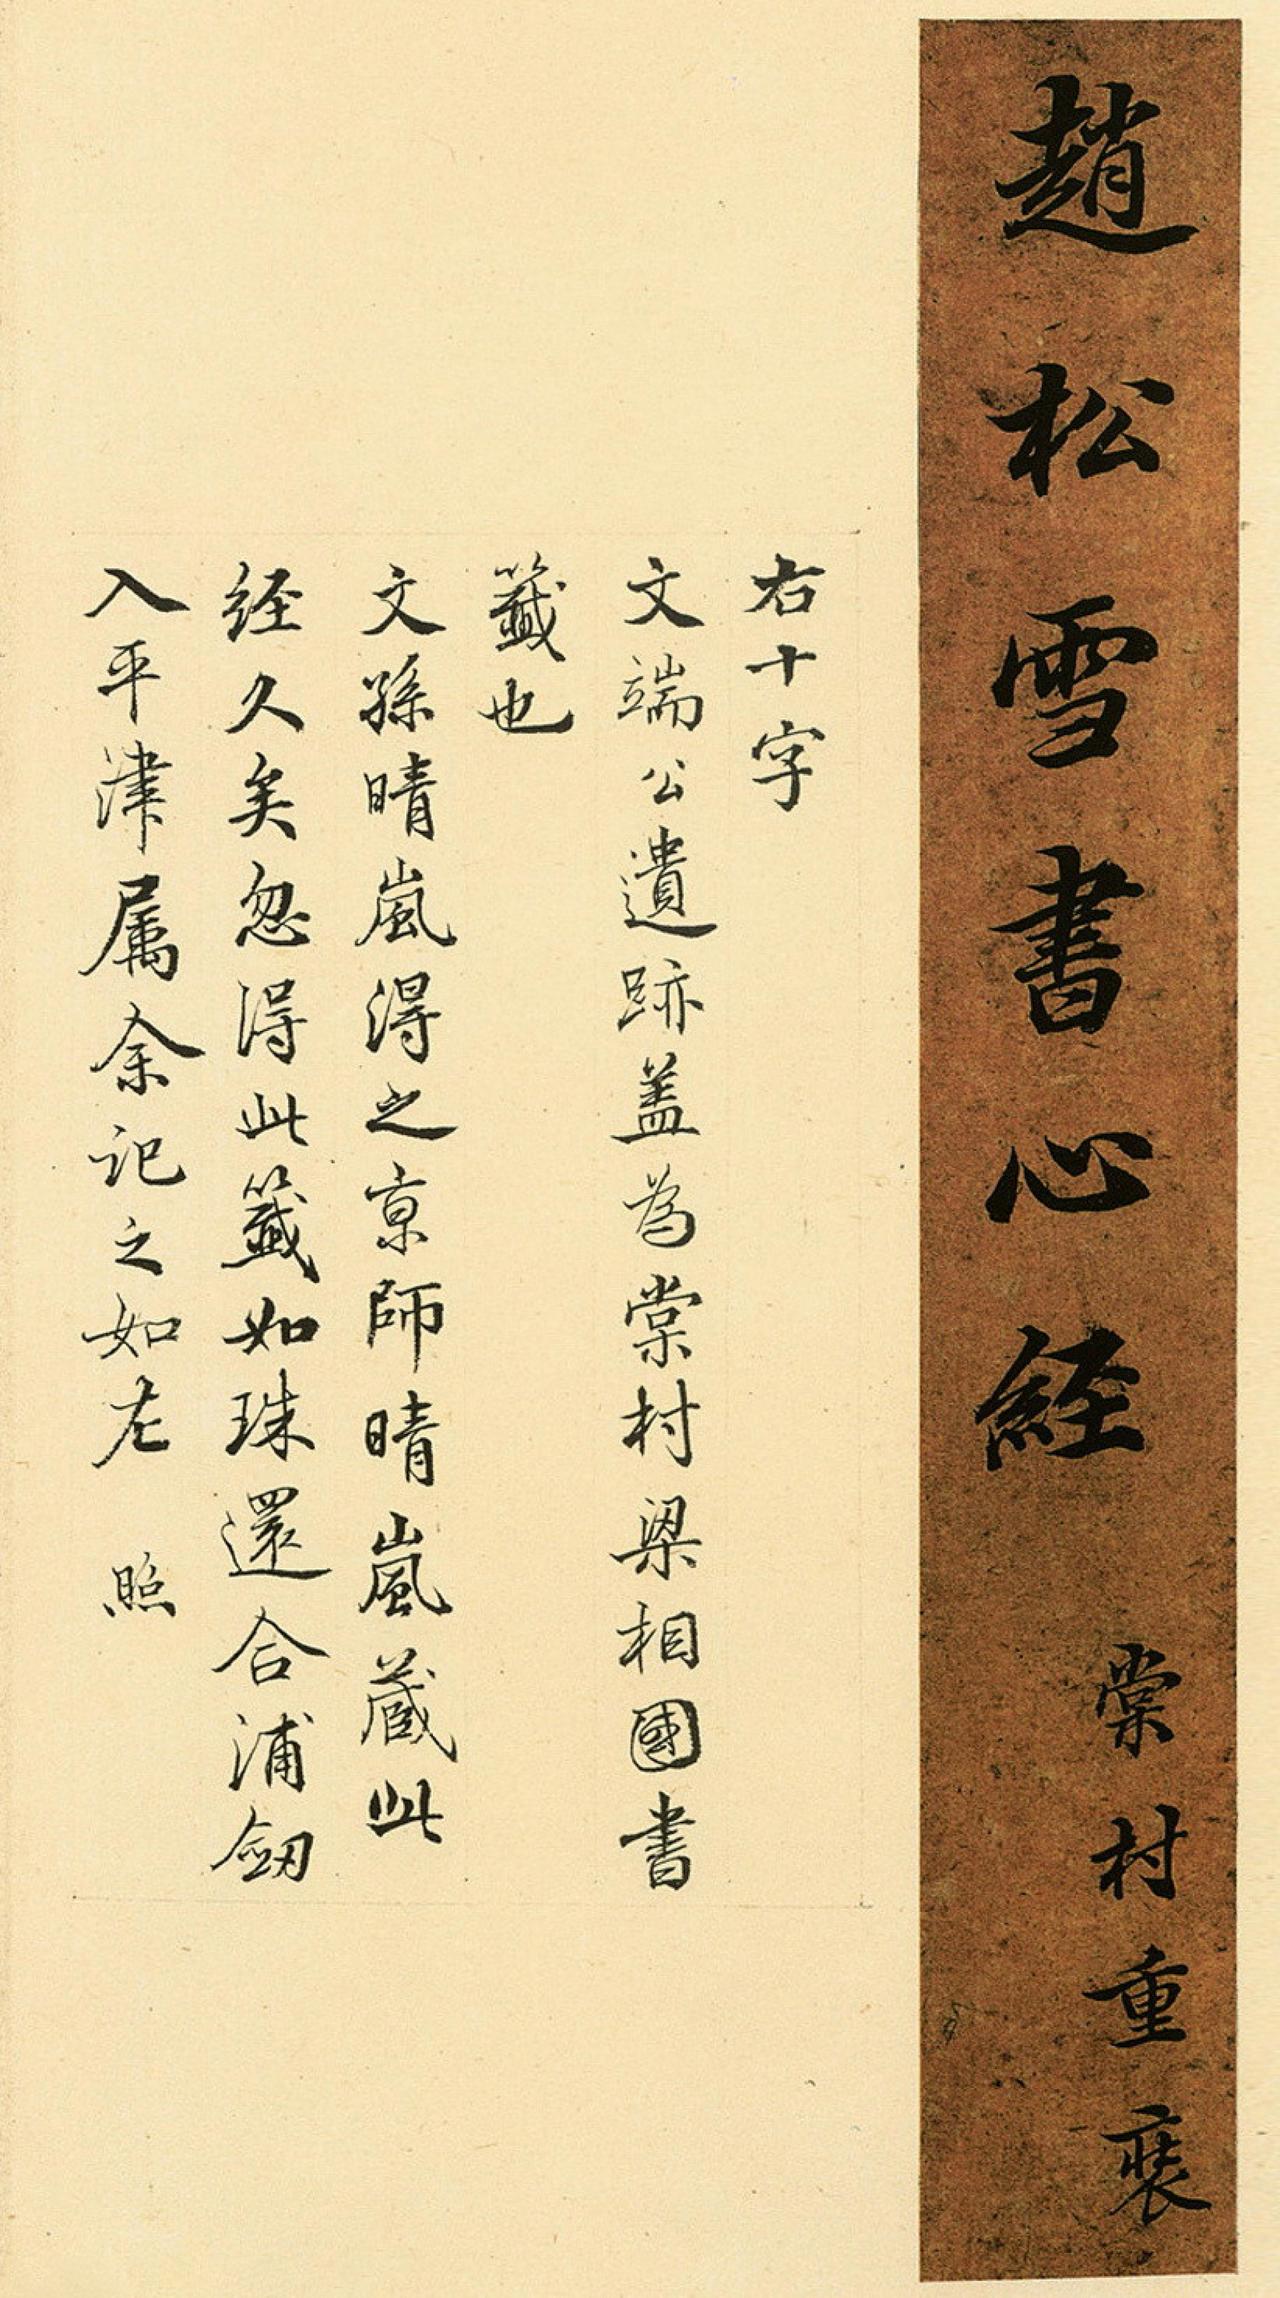 趙松雪書心經
棠村重裘
右十字
文端公遺跡蓋為棠村梁相國書
籤也
文孫晴嵐得之京師晴嵐藏此
经久矣忽得此籤如珠還合浦劔
入平津属余记之如左 照